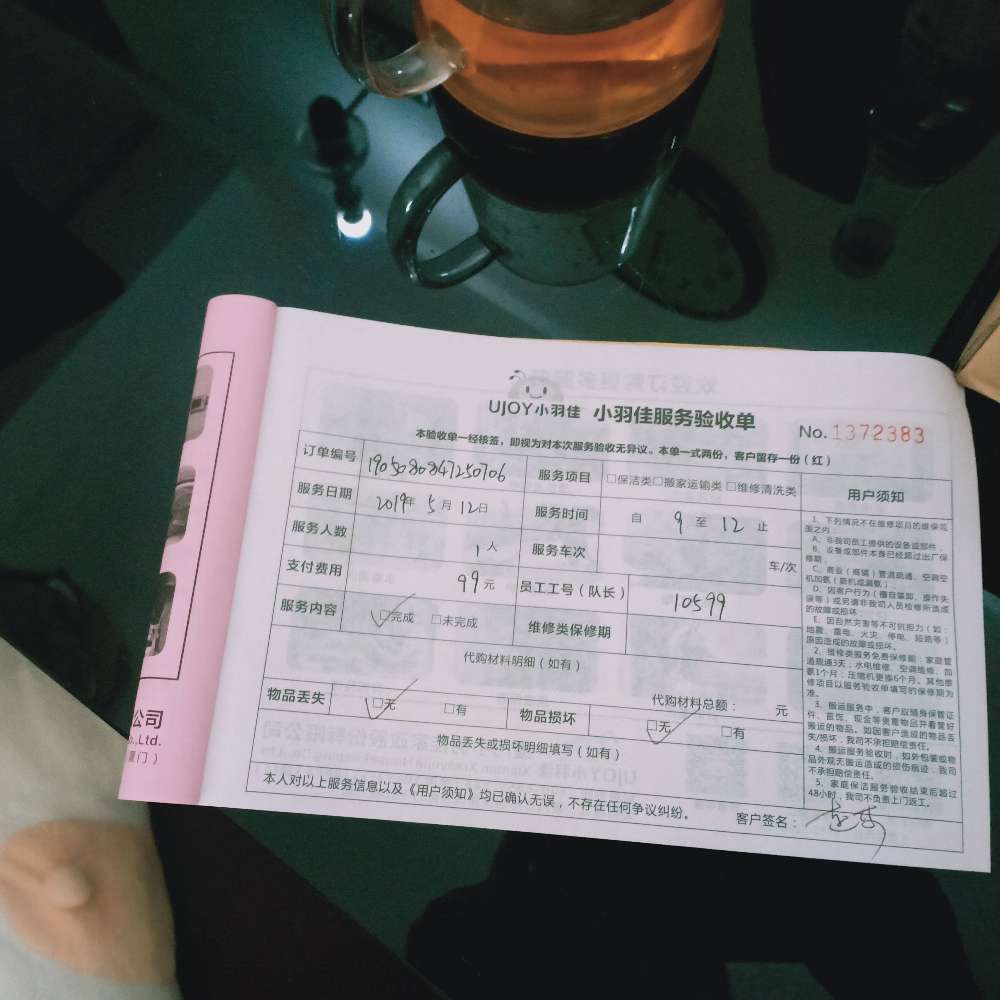 UJOY小羽佳 小羽佳服务验收单
No.1372383
本验收单一经核签，即视为对本次服务验收无异议。本单一式两份，客户留存一份（红）
订单编号 1905080847250706 服务项目 □保洁类□搬家运输类□维修清洗类
服务日期 2019年5月12日 服务时间 自 9 至 12 止
服务人数 1人 服务车次 车/次
支付费用 99元 员工工号（队长） 10599
服务内容 □完成 □未完成 维修类保修期
代购材料明细（如有）
代购材料总额： 元
物品丢失 □无 □有 物品损坏 □无 □有
物品丢失或损坏明细填写（如有）
本人对以上服务信息以及《用户须知》均已确认无误，不存在任何争议纠纷。 客户签名：
用户须知
1、下列情况不在维修项目的维保范
围之内：
A、非我司员工提供的设备或部件；
B、设备或部件本身已经超过出厂保
修期；
C、商业（商铺）管道疏通、空调空
机加氨（新机或漏氨）；
D、因客户行为（擅自装卸、操作失
误等）或另请非我司人员检修所造成
的故障或损坏；
E、因自然灾害等不可抗拒力（如：
地震、雷电、火灾、停电、短路等）
原因造成的故障或损坏。
2、维修类服务免费保修期：家庭管
道疏通3天；水电维修、空调维修、加
氨1个月；压缩机更换6个月。其他维
修项目以服务验收单填写的保修期为
准。
3、搬运服务中，客户应随身保管证
件、首饰、现金等贵重物品并看管好
搬运的物品。如因客户造成的物品丢
失/损坏，我司不承担赔偿责任。
4、搬运服务验收时，如外包装或物
品外观无搬运造成的损伤痕迹，我司
不承担赔偿责任。
5、家庭保洁服务验收结束后超过
48小时，我司不负责上门返工。
公司
o.,Ltd.
厦门）